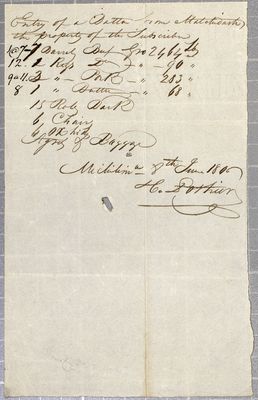 Entry of a Batteau from Matchedash
the property of the Subscriber
1@7 7 Barrels Beef Gro 2464 lb
12. 2 Kegs Do — " 90 "
9@11 3 " — Pork — " 283 "
8 1 " Butter — " 68 "
15 Rolls Bark
6 Chairs
4 Ox hides
& Baggage
8th June 180